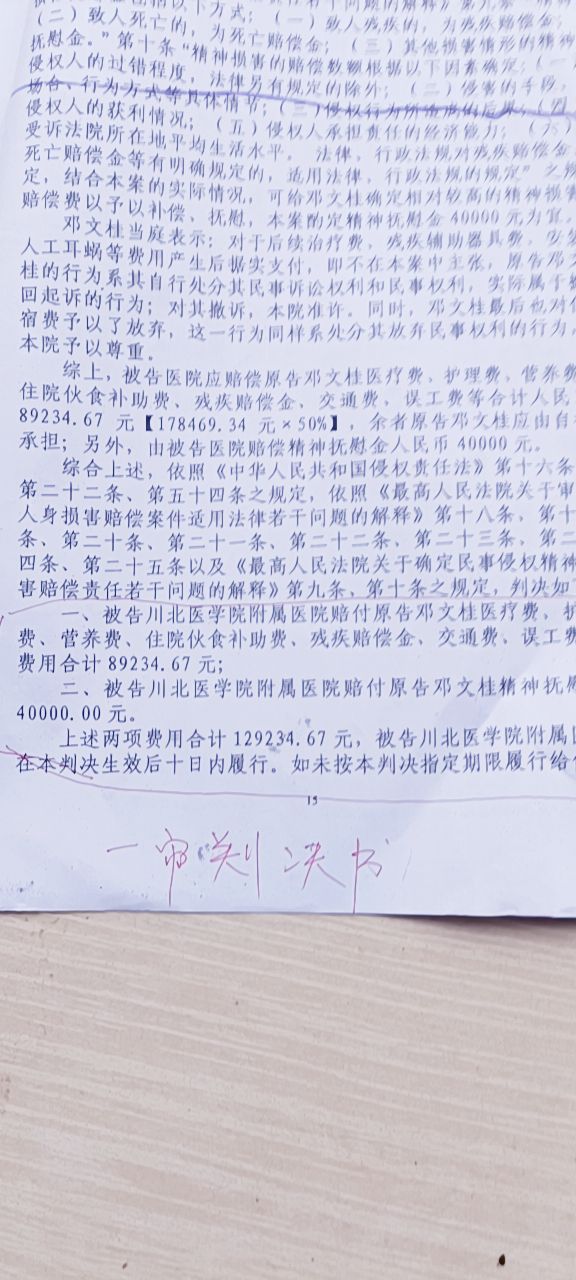 (二)致人死亡的,为死亡赔偿金;(三)其他损害情形的精神
抚慰金。”第十条“精神损害的赔偿数额根据以下因素确定:(一
侵权人的过错程度,法律另有规定的除外;(二)侵害的手段、
场合、行为方式等具体情节;(三)侵权行为所造成的后果;(四
侵权人的获利情况;(五)侵权人承担责任的经济能力;(六)
受诉法院所在地平均生活水平。法律、行政法规对残疾赔偿金
死亡赔偿金等有明确规定的,适用法律、行政法规的规定”之规
定,结合本案的实际情况,可给邓文桂确定相对较高的精神损害
赔偿费以予以补偿、抚慰,本案酌定精神抚慰金40000元为宜。
邓文桂当庭表示:对于后续治疗费、残疾辅助器具费、安装
人工耳蜗等费用产生后据实支付,即不在本案中主张,原告邓文
桂的行为系其自行处分其民事诉讼权利和民事权利,实际属于撤
回起诉的行为;对其撤诉,本院准许。同时,邓文桂最后也对住
宿费予以了放弃,这一行为同样系处分其放弃民事权利的行为。
本院予以尊重。
综上,被告医院应赔偿原告邓文桂医疗费、护理费、营养费
住院伙食补助费、残疾赔偿金、交通费、误工费等合计人民
89234.67 元【178469.34 元×50%】,余者原告邓文桂应由自
承担;另外,由被告医院赔偿精神抚慰金人民币40000元。
综合上述,依照《中华人民共和国侵权责任法》第十六条
第二十二条、第五十四条之规定,依照《最高人民法院关于审
人身损害赔偿案件适用法律若干问题的解释》第十八条、第十
条、第二十条、第二十一条、第二十二条、第二十三条、第二
四条、第二十五条以及《最高人民法院关于确定民事侵权精神
害赔偿责任若干问题的解释》第九条、第十条之规定,判决如
一、被告川北医学院附属医院赔付原告邓文桂医疗费、护
费、营养费、住院伙食补助费、残疾赔偿金、交通费、误工费
费用合计89234.67元;
二、被告川北医学院附属医院赔付原告邓文桂精神抚慰
40000.00元。
上述两项费用合计129234.67元,被告川北医学院附属医
在本判决生效后十日内履行。如未按本判决指定期限履行给
15
一审判决书